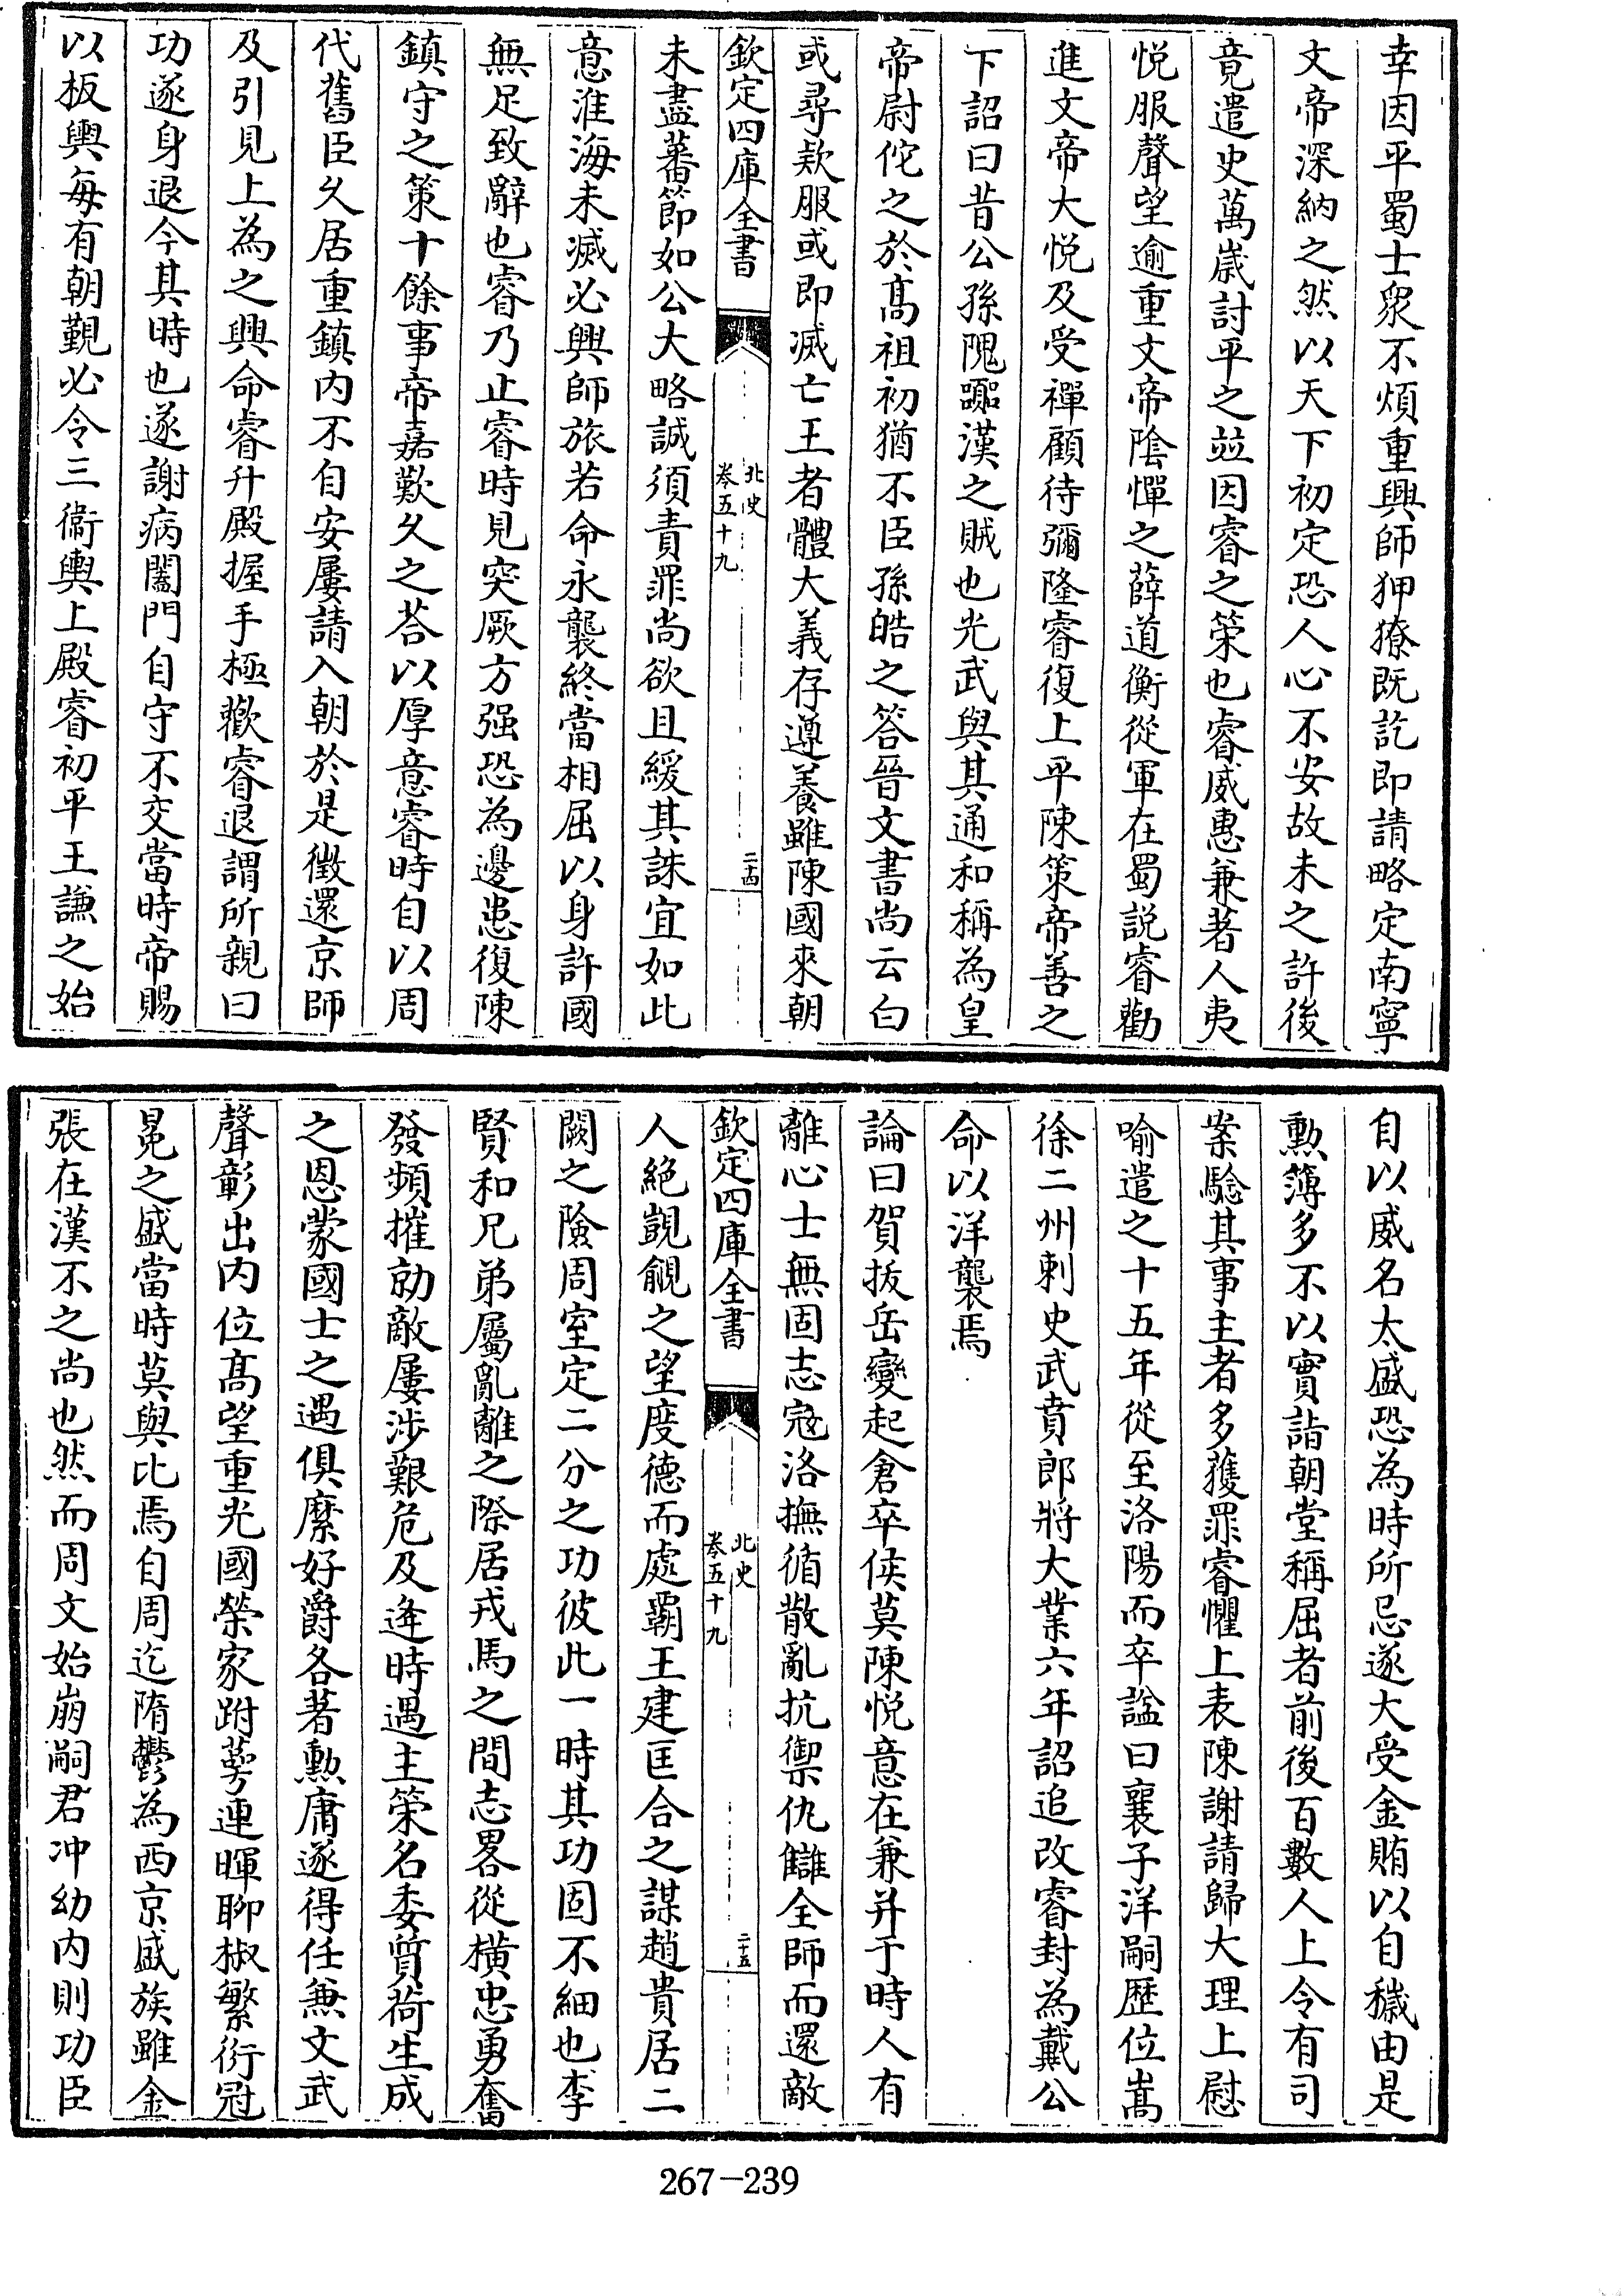 幸因平蜀士衆不煩重興師狎獠既訖即請略定南寧
文帝深納之然以天下初定恐人心不安故未之許後
竟遣史萬嵗討平之並因睿之策也睿威惠兼著人夷
悦服聲望逾重文帝隂憚之薛道衡從軍在蜀説睿勸
進文帝大悦及受禪顧待彌隆睿復上平陳策帝善之
下詔曰昔公孫隗囂漢之賊也光武與其通和稱為皇
帝尉佗之於髙祖初猶不臣孫皓之答晉文書尚云白
或尋欵服或即滅亡王者體大義存遵養雖陳國來朝
欽定四庫全書
北史
卷五十九
二十四
未盡蕃節如公大略誠須責罪尚欲且緩其誅宜如此
意淮海未滅必興師旅若命永襲終當相屈以身許國
無足致辭也睿乃止睿時見突厥方强恐為邊患復陳
鎮守之策十餘事帝嘉歎久之荅以厚意睿時自以周
代舊臣乆居重鎮内不自安屢請入朝於是徴還京師
及引見上為之興命睿升殿握手極歡睿退謂所親曰
功遂身退今其時也遂謝病闔門自守不交當時帝賜
以板輿每有朝覲必令三衞輿上殿睿初平王謙之始
自以威名太盛恐為時所忌遂大受金賄以自穢由是
勲簿多不以實詣朝堂稱屈者前後百數人上令有司
案驗其事主者多獲罪睿懼上表陳謝請歸大理上慰
喻遣之十五年從至洛陽而卒諡曰襄子洋嗣歴位嵩
徐二州刺史武賁郎將大業六年詔追改睿封為戴公
命以洋襲焉
論曰賀拔岳變起倉卒侯莫陳悦意在兼并于時人有
離心士無固志冦洛撫循散亂抗禦仇讎全師而還敵
欽定四庫全書
北史
卷五十九
二十五
人絶覬覦之望度德而處霸王建匡合之謀趙貴居二
闕之險周室定二分之功彼此一時其功固不細也李
賢和兄弟屬亂離之際居戎馬之間志畧從橫忠勇奮
發頻摧勍敵屢渉艱危及逢時遇主策名委質荷生成
之恩蒙國士之遇俱縻好爵各著勲庸遂得任兼文武
聲彰出内位髙望重光國榮家跗萼連暉聊椒繁衍冠
冕之盛當時莫與比焉自周迄隋鬱為西京盛族雖金
張在漢不之尚也然而周文始崩嗣君冲幼内則功臣
267-239